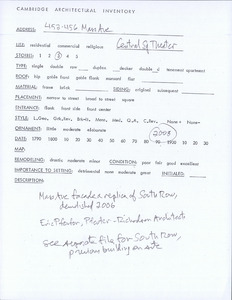 CAMBRIDGE ARCHITECTURAL INVENTORY
ADDRESS: 452-456 Mass Ave
USE: residential commercial religious Central Sq Theater
STORIES: 1 2 3 4 5
TYPE: single double row duplex decker double d tenement apartment
ROOF: hip gable front gable flank mansard flat
MATERIAL: frame brick SIDING: original subsequent
PLACEMENT: narrow to street broad to street square
ENTRANCE: flank front side front center
STYLE:
ORNAMENT: little moderate elaborate 2008
DATE: 1790 1800 10 20 30 40 50 60 70 80 90 1900 10 20 30
MAP:
REMODELING: drastic moderate minor CONDITION: poor fair good excellent
IMPORTANCE TO SETTING: detrimental none moderate great INITIALED:
DESCRIPTION:
Mass Ave facade a replica of South Row,
demolished 2006
Eric Pfeufer, Pfeufer-Richardson Architects
See separate file for South Row,
previous building on site